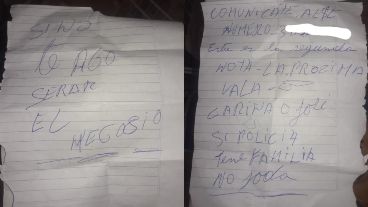 SINO
lo AGO
SERAR
EL
NEGOSIO
COMUNICATE ALTL
NUMERO
Esta es la segunda
NOTA - LA PROZIMA
VALA
GARINA O Jose
SI POLICIA
tene FAMILIA
NO Joda